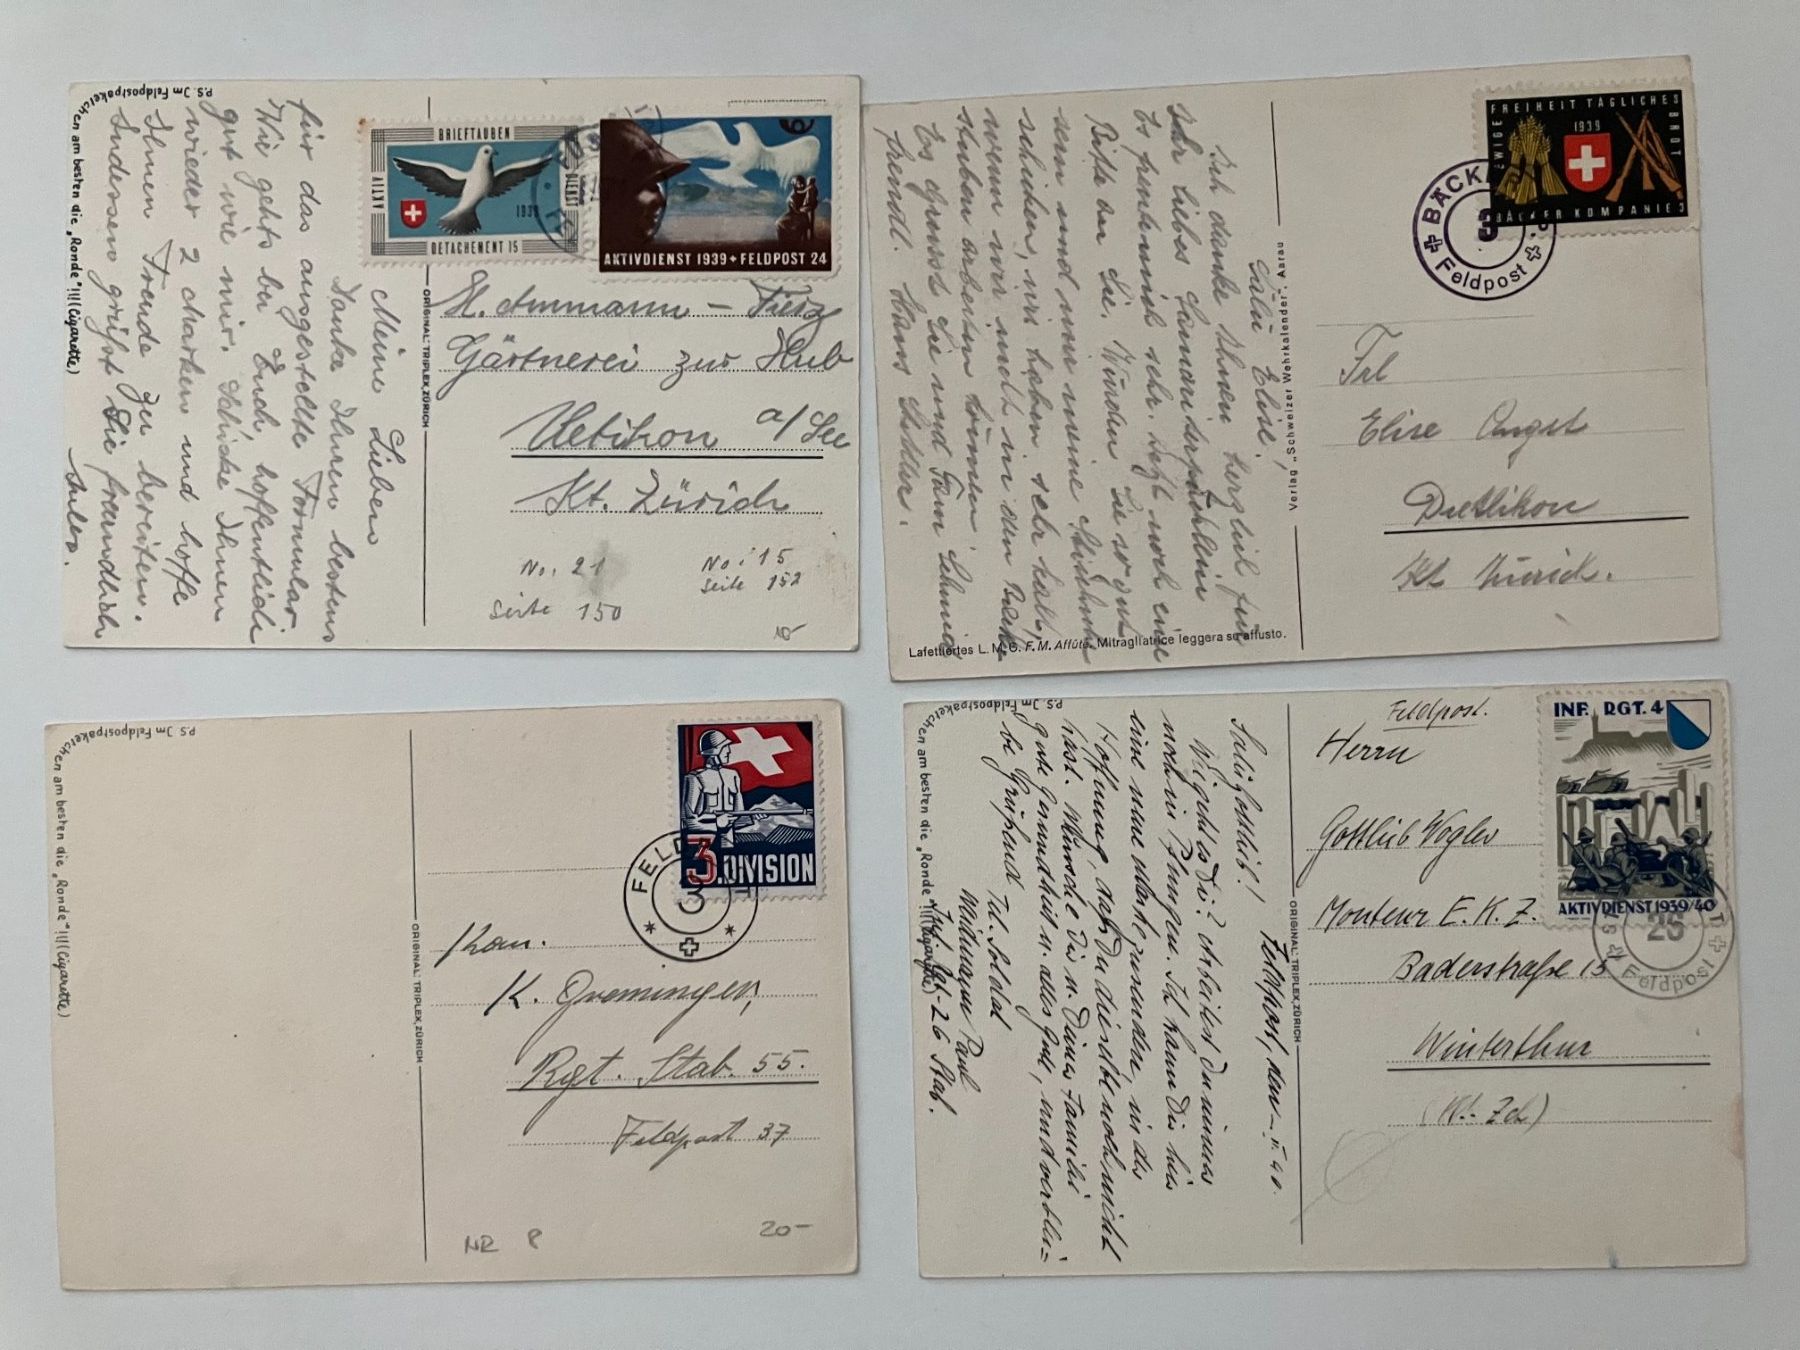 P.S. Im Feldpostpaketchen am besten die „Ronde"!!!(Cigarette)
Meine Lieben
Danke Ihnen bestens
für das ausgestellte Formular
Wie gehts bei Euch, hoffentlich
gut wie mir. Schicke Ihnen
wieder 2 Marken und hoffe
Ihnen Freude zu bereiten.
Indessen grüsst Sie freundlich
ORIGINAL: TRIPLEX, ZÜRICH
BRIEFTAUBEN
AKTIV
DIENST
1939
DETACHEMENT 15
AKTIVDIENST 1939 + FELDPOST 24
H. Ammann -
Gärtnerei zur Hub
Uetikon a/See
Kt. Zürich
No. 21
Seite 150
No. 15
Seite 152
Salü Elise!
Ich danke Ihnen herzlich für
Ihr liebes
Es freute mich sehr. Jetzt noch eine
Bitte an Sie. Würden Sie so gut
sein und mir meine
schicken, wir haben sehr kalt,
wenn wir nicht in den
Stuben arbeiten können.
Es grüsst Sie und Fam.
freundl. Hans
Verlag „Schweizer Wehrkalender", Aarau
Lafettiertes L. M. G. F. M. Affûté. Mitragliatrice leggera su affusto.
EWIGE FREIHEIT TÄGLICHES BROT
1939
BÄCKER KOMPANIE 3
BÄCK
3
Feldpost
Frl
Elise Angst
Dietlikon
Kt Zürich.
P.S. Im Feldpostpaketchen am besten die „Ronde"!!!(Cigarette)
ORIGINAL: TRIPLEX, ZÜRICH
3. DIVISION
FELD
3
Kan.
K.
Rgt. Stab. 55.
Feldpost 37
NR 8
20-
P.S. Im Feldpostpaketchen am besten die „Ronde"!!!(Cigarette)
Feldpost, den - V. 40.
Salü Gottlieb!
Wie geht es Dir? Arbeitest Du immer
noch in Pfungen. Ich kann Dir bis
eine neue Marke zusenden, in der
Hoffnung, dass Du dieselbe noch nicht
hast. Wünsche Dir u. Deiner Familie
gute Gesundheit u. alles Gute, und verblei=
be Grüssend Id. Soldat
Widmann Paul
Inf. Rgt. 26 Stab.
ORIGINAL: TRIPLEX, ZÜRICH
INF. RGT. 4
AKTIVDIENST 1939/40
26
Feldpost
Feldpost.
Herrn
Gottlieb Vogler
Monteur E. K. Z.
Baderstraße 15
Winterthur
(Kt. Zch)